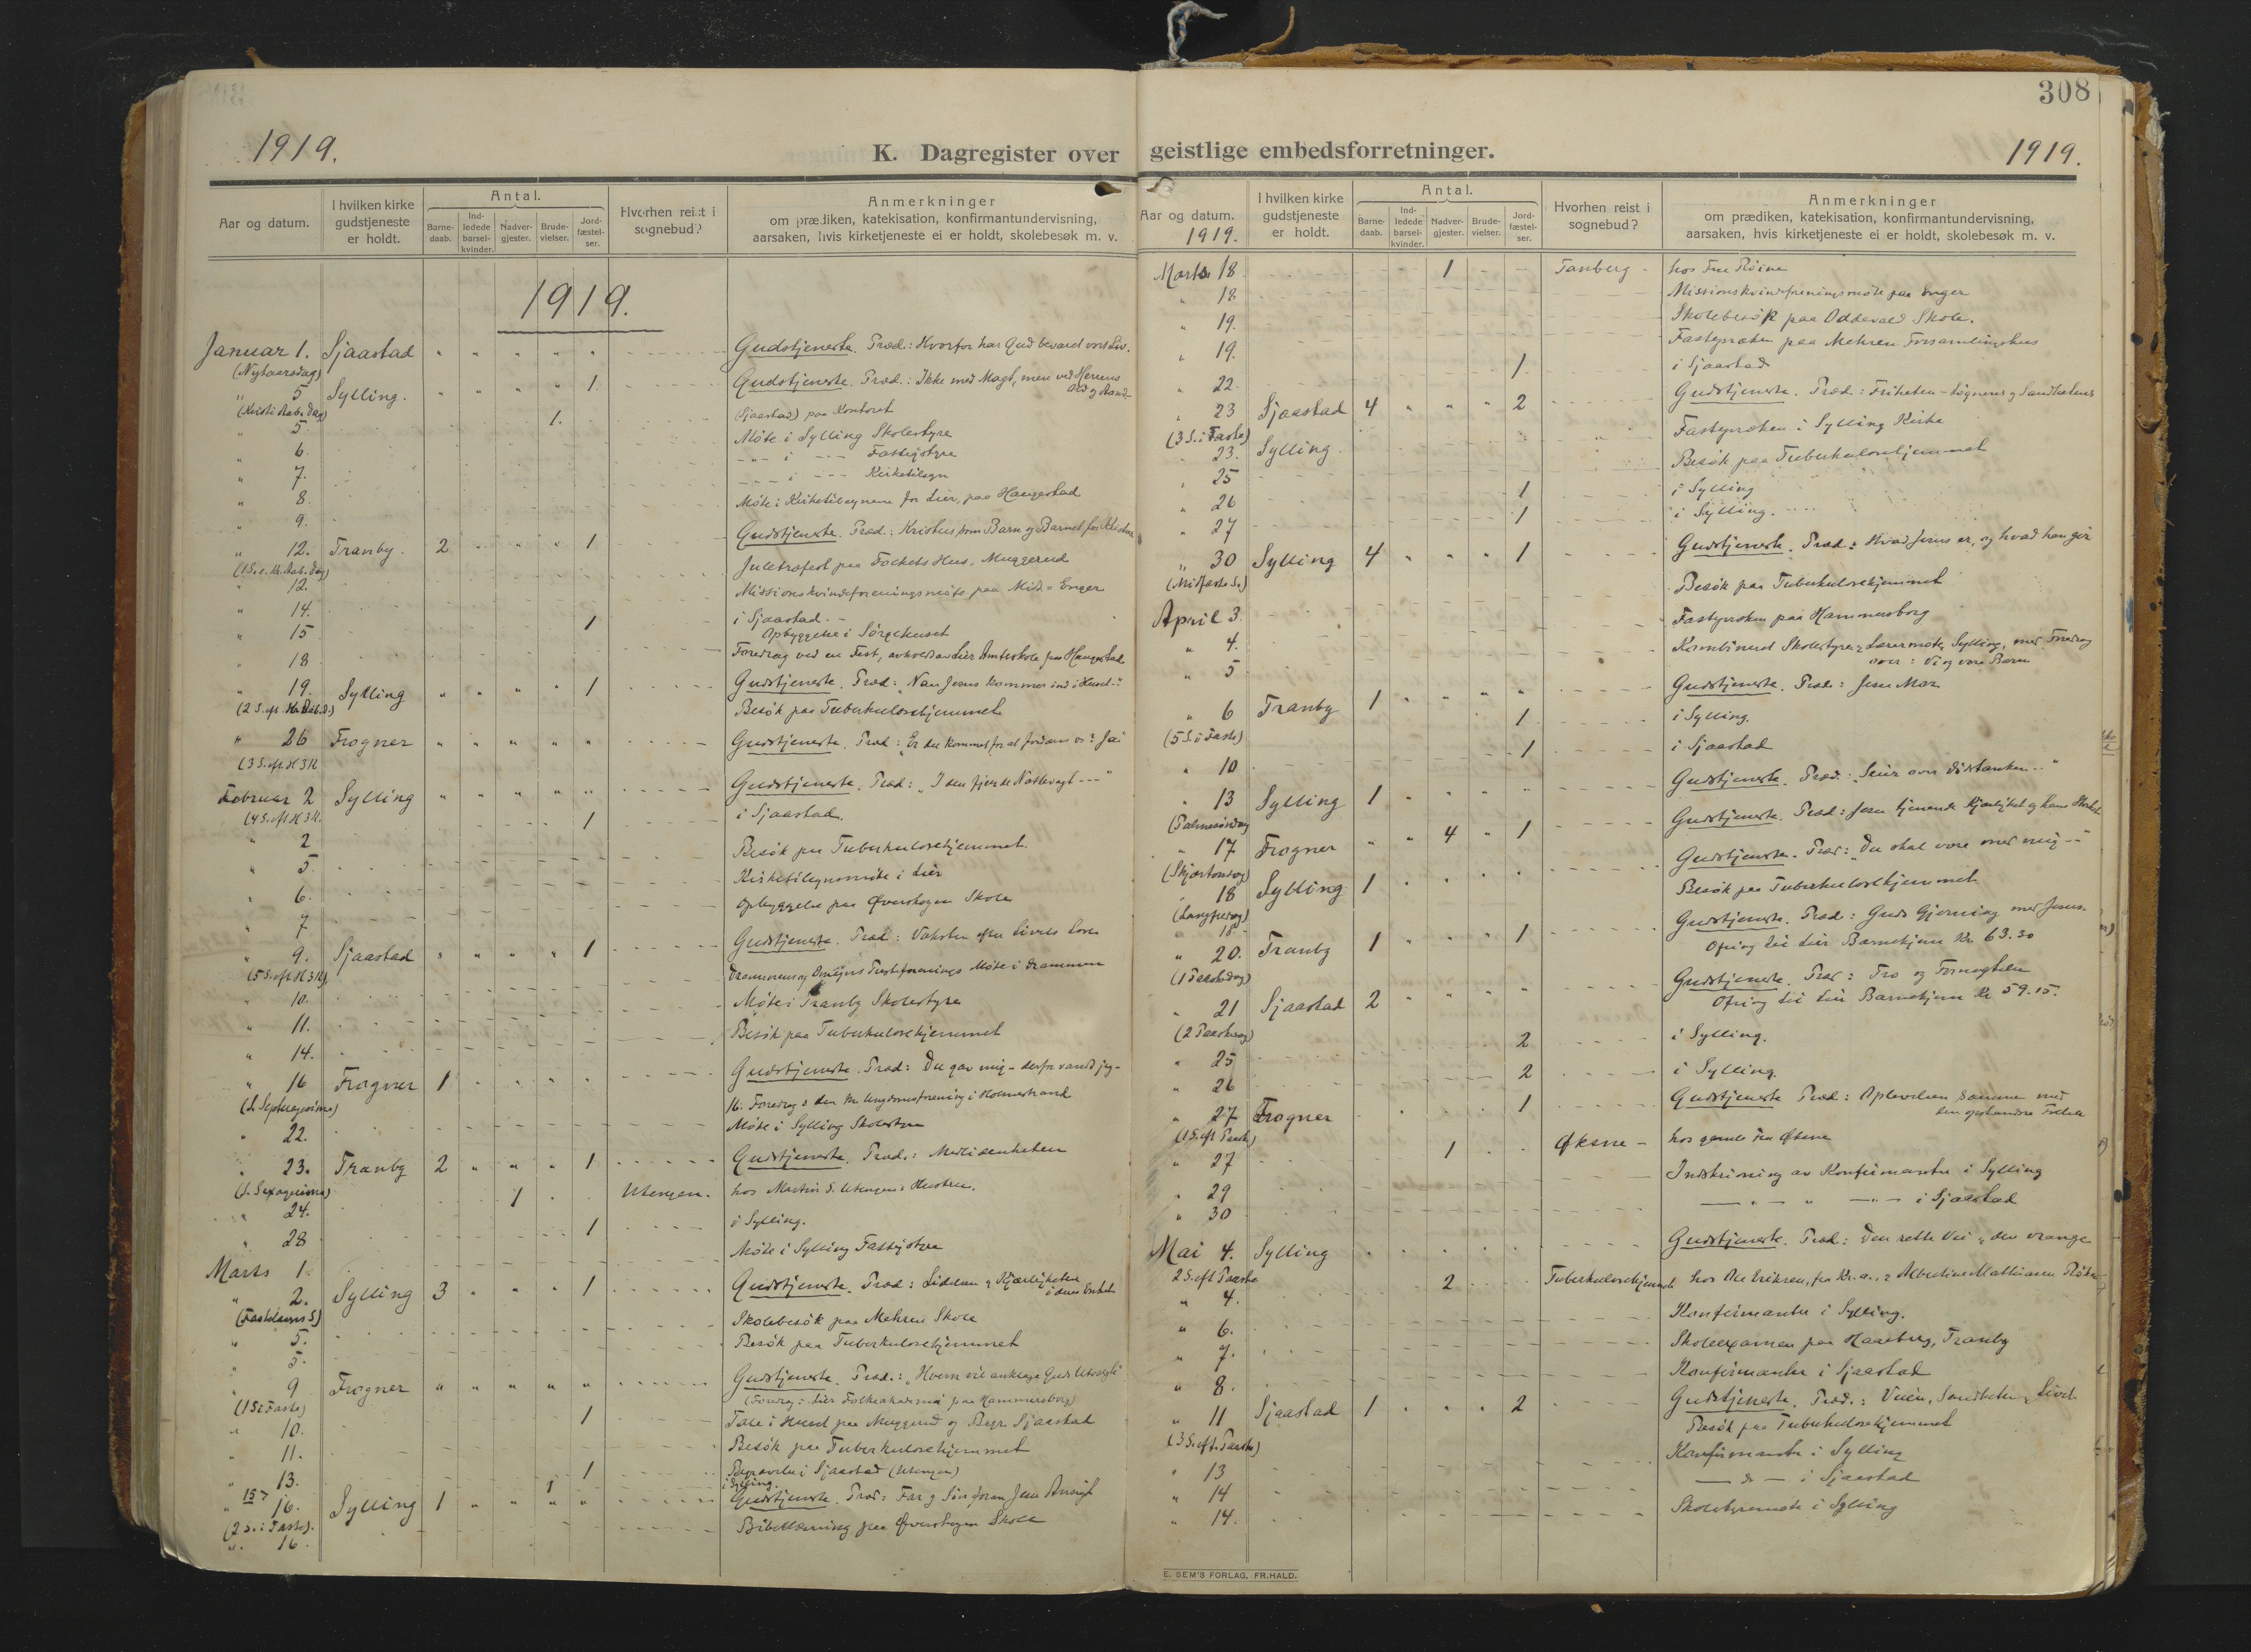 1919.
K. Dagregister over
Aar og datum.
I hvilken kirke gudstjeneste er holdt.
Antal.
Barne-daab.
Ind-ledede barsel-kvinder.
Nadver-gjester.
Brude-vielser.
Jord-fæstel-ser.
Hvorhen reist i sognebud?
Anmerkninger
om prædiken, katekisation, konfirmantundervisning,
aarsaken, hvis kirketjeneste ei er holdt, skolebesøk m. v.
1919.
Januar 1. Sjaastad " " " " " Gudstjeneste. Præd.: Hvorfor har Gud bevaret vort Liv.
(Nytaarsdag)
" 5 Sylling. " " " " 1 Gudstjeneste. Præd.: Ikke med Magt, men ved Herrens Ord og Aand
(Kristi Aab. dag)
" 5. 1. (Sjaastad) paa Kontoret
" 6. Møte i Sylling Skolestyre
" 7. -"- i -"- Fattigstyre
" 8. -"- i -"- Kirketilsyn
" 9. Møte i Kirketilsynene for Lier, paa Haugestad
" 12. Tranby. 2 " " " 1 Gudstjeneste. Præd.: Kristus som Barn og Barnet for Kristus
(1 S. e. Kr. Aab. dag)
" 12. Juletræfest paa Folkets Hus, Muggerud
" 14. Missionskvindeforeningsmøte paa Mid-Enger
" 15 1 i Sjaastad. -
Opbyggelse i Sørgehuset
" 18 Foredrag ved en Fest, avholdt av Lier Amtsskole paa Haugestad
" 19. Sylling " " " " 1 Gudstjeneste. Præd: "Naar Jesus kommer ind i Huset."
(2 S. eft. Kr. Aab. d.)
Besøk paa Tuberkulosehjemmet
" 26 Frogner " " " " " Gudstjeneste. Præd: "Er du kommet for at fordærve os? Ja"
(3 S. eft. H 3 K
Februar 2 Sylling " " " " " Gudstjeneste. Præd: "I den fjerde Nattevagt ---"
(4 S. eft H 3 K.
" 2 1 i Sjaastad.
" 5. Besøk paa Tuberkulosehjemmet.
" 6. Kirketilsynsmøte i Lier
" 7 Opbyggelse paa Øverskogen Skole
" 9. Sjaastad " " " " 1 Gudstjeneste. Præd: Væksten efter Livets Love
(5 S. eft H 3 K)
" 10. Drammens og Omegns Præsteforenings Møte i Drammen
" 11. Møte i Tranby Skolestyre
" 14. Besøk paa Tuberkulosehjemmet
" 16 Frogner 1 " " " " Gudstjeneste. Præd: Du gav mig - derfor vandt jeg -
(S. Septuagesima)
16. Foredrag i den kr. Ungdomsforening i Holmestrand
" 22. Møte i Sylling Skolestyre
" 23. Tranby 2 " " " 1 Gudstjeneste. Præd.: Medlidenheten
(S. Sexagesima)
" 24. 1 Utengen. hos Martin S. Utengens Hustru.
" 28 1 i Sylling.
Marts 1. Møte i Sylling Fattigstyre
" 2. Sylling 3 " " " 1 Gudstjeneste. Præd: Lidelsen og Kjærligheten i deres Enhet
(Fastelavns S)
" 5. Skolebesøk paa Mehren Skole
" 5. Besøk paa Tuberkulosehjemmet
" 9 Frogner " " " " " Gudstjeneste. Præd.: "Hvem vil anklage Guds Utvalgte"
(1 S i Faste)
(Foredrag i Lier Folkeakademi paa Hammersborg)
" 10. 1 Tale i Huset paa Muggerud og Begr. Sjaastad
" 11. Besøk paa Tuberkulosehjemmet
" 13. 1 Begravelse i Sjaastad (Utengen)
15 > 1 i Sylling.
" 16. Sylling 1 " " " " Gudstjeneste. Præd: Far og Søn foran Jesu Ansigt
(2 S. i Faste).
" 16. Bibellæsning paa Øverskogen Skole
308
geistlige embedsforretninger.
1919.
Aar og datum.
1919.
I hvilken kirke gudstjeneste er holdt.
Antal.
Barne-daab.
Ind-ledede barsel-kvinder.
Nadver-gjester.
Brude-vielser.
Jord-fæstel-ser.
Hvorhen reist i sognebud?
Anmerkninger
om prædiken, katekisation, konfirmantundervisning,
aarsaken, hvis kirketjeneste ei er holdt, skolebesøk m. v.
Marts 18 1 Tanberg - hos Fru
" 18 Missionskvindeforeningsmøte paa Enger
" 19. Skolebesøk paa Oddevald Skole.
" 19. Fastepræken paa Mehren Forsamlingshus
" 22. 1 i Sjaastad
" 23 Sjaastad 4 " " " 2 Gudstjeneste. Præd: Friheten - Løgnens og Sandhetens
(3 S. i Faste)
23. Sylling Fastepræken i Sylling Kirke
" 25 Besøk paa Tuberkulosehjemmet
" 26 1 i Sylling
" 27 1 i Sylling.
" 30 Sylling 4 " " " 1 Gudstjeneste. Præd: Hvad Jesus er, og hvad han gir
(Midfaste S.)
Besøk paa Tuberkulosehjemmet
April 3. Fastepræken paa Hammersborg
" 4. Kombineret Skolestyre og Lærermøte, Sylling, med Foredrag
over: Vi og vore Barn
" 5
" 6 Tranby 1 " " " " Gudstjeneste. Præd: Jesu Mor
(5 S. i Faste)
1 i Sylling.
" 10 1 i Sjaastad
" 13 Sylling 1 " " " " Gudstjeneste. Præd: "Seier over dødstanken.."
(Palmesøndag
" 17 Frogner " " 4 " 1 Gudstjeneste. Præd: Jesu tjenende Kjærlighet og hans
(Skjærtorsdag)
" 18 Sylling 1 " " " " Gudstjeneste. Præd: "Du skal være med mig --"
(Langfredag)
" 18. Besøk paa Tuberkulosehjemmet
" 20. Tranby 1 " " " 1 Gudstjeneste. Præd: Guds Gjerning med Jesus.
(1 Paaskedag)
Ofring til Lier Barnehjem Kr. 63.30
" 21 Sjaastad 2 " " " " Gudstjeneste. Præd: Tro og Fornegtelse
(2 Paaskedag)
Ofring til Lier Barnehjem Kr 59.15.
" 25 2 i Sylling.
" 26 2 i Sylling.
" 27 Frogner 1 Gudstjeneste Præd: Oplevelsen sammen med
den opstandne Frelser
(1 S. eft Paaske)
" 27 1 Øksne - hos gamle Fru Øksne
" 29 Indskrivning av Konfirmanter i Sylling
" 30 - " - " - " - i Sjaastad
Mai 4. Sylling Gudstjeneste. Præd: Den rette Vei og den vrange
2 S. eft Paaske
" 4. 2 Tuberkulosehjemmet hos Ole Eriksen, fra Kr.a., og Albertine Mathiasen
" 6. Konfirmanter i Sylling.
" 7. Skoleexamen paa Haaeberg, Tranby
" 8. Konfirmanter i Sjaastad
" 11 Sjaastad 1 " " " 2 Gudstjeneste. Præd.: Veien, Sandheten, Livet
(3 S. eft. Paaske)
Besøk paa Tuberkulosehjemmet
" 13 Konfirmanter i Sylling
" 14 - do - i Sjaastad
" 14. Skolestyremøte i Sylling
E. SEM'S FORLAG, FR.HALD.